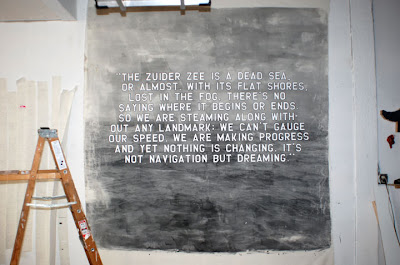 "THE ZUIDER ZEE IS A DEAD SEA,
OR ALMOST; WITH ITS FLAT SHORES,
LOST IN THE FOG, THERE'S NO
SAYING WHERE IT BEGINS OR ENDS.
SO WE ARE STEAMING ALONG WITH-
OUT ANY LANDMARK; WE CAN'T GAUGE
OUR SPEED. WE ARE MAKING PROGRESS
AND YET NOTHING IS CHANGING. IT'S
NOT NAVIGATION BUT DREAMING."